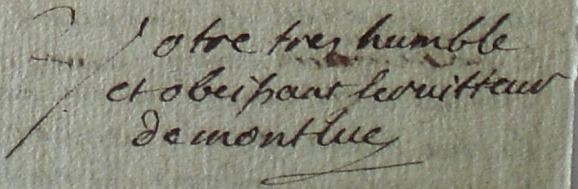 Votre tres humble
et obeissant seruitteur
demontluc